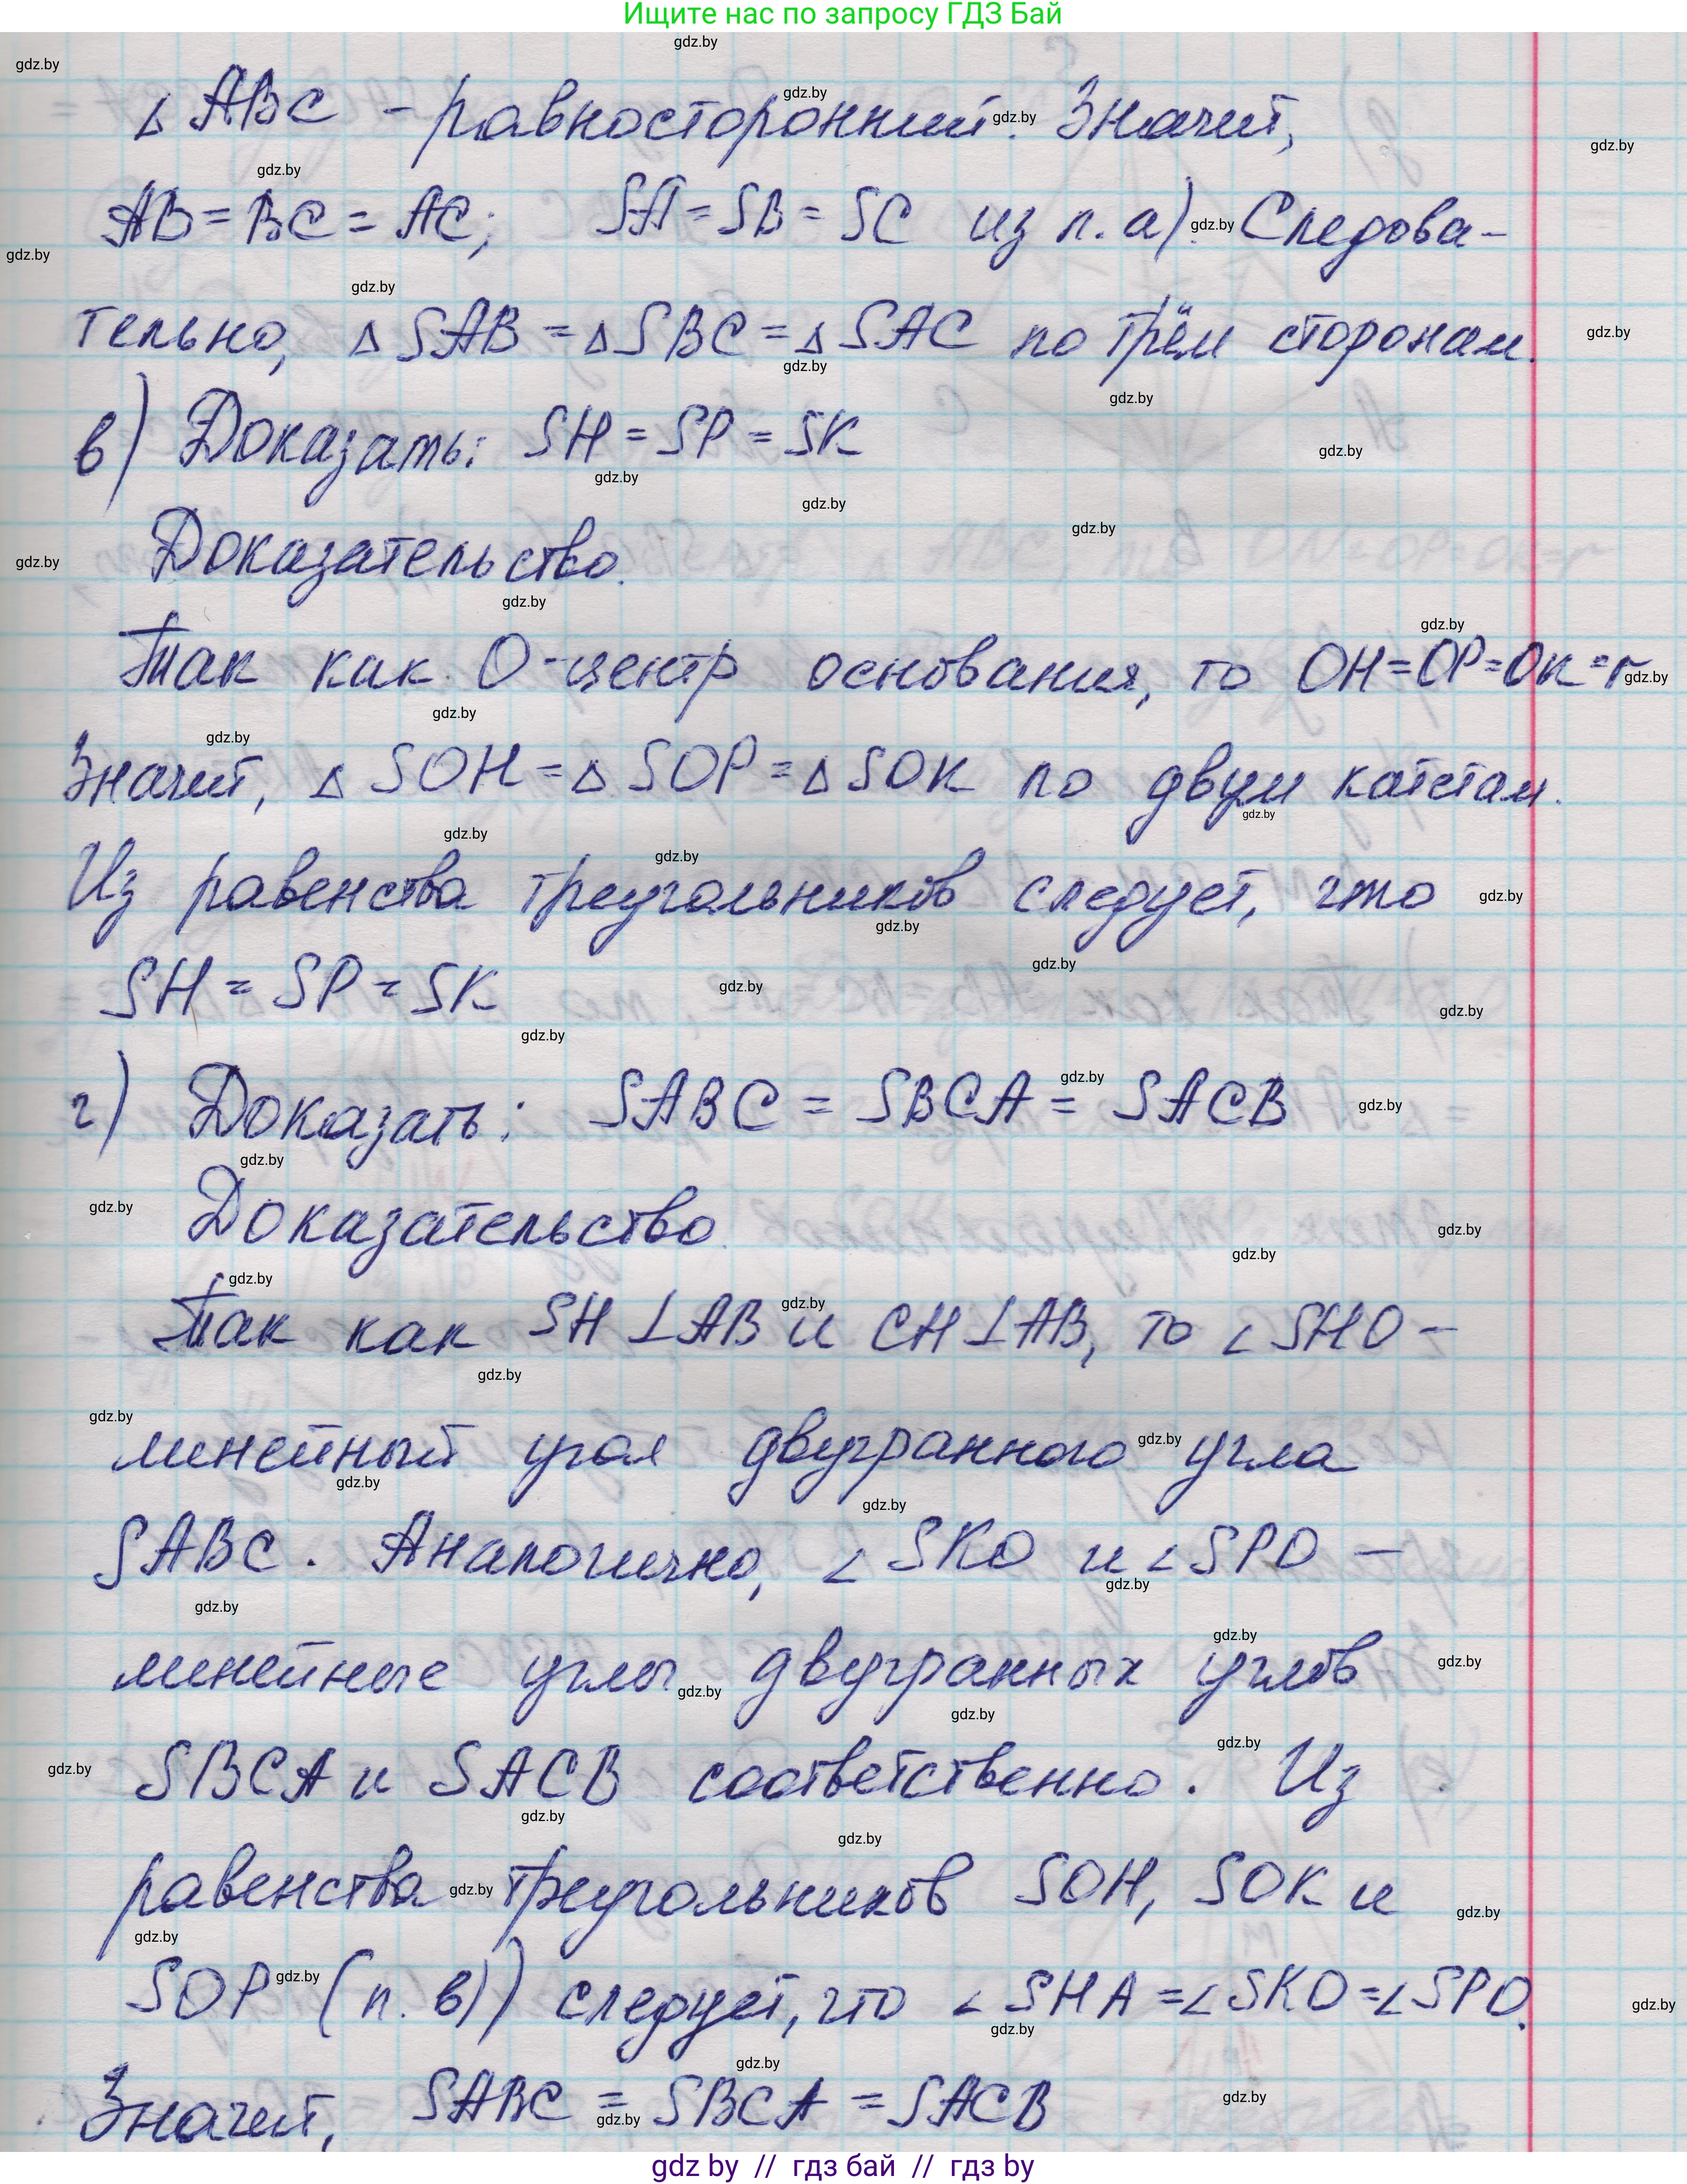 Ищите нас по запросу ГДЗ Бай
△ ABC - равносторонний. Значит,
AB = BC = AC; SA = SB = SC из п. а). Следова-
тельно, △ SAB = △ SBC = △ SAC по трём сторонам.
в) Доказать: SH = SP = SK
Доказательство.
Так как O-центр основания, то OH=OP=OK=r
Значит, △ SOH = △ SOP = △ SOK по двум катетам.
Из равенства треугольников следует, что
SH = SP = SK
г) Доказать: SABC = SBCA = SACB
Доказательство.
Так как SH ⊥ AB и CH ⊥ AB, то ∠ SHO -
линейный угол двугранного угла
SABC. Аналогично, ∠ SKO и ∠ SPO -
линейные углы двугранных углов
SBCA и SACB соответственно. Из
равенства треугольников SOH, SOK и
SOP (п. в)) следует, что ∠ SHA = ∠ SKO = ∠ SPO.
Значит, SABC = SBCA = SACB
gdz by // гдз бай // гдз by